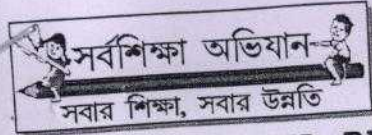 সর্বশিক্ষা অভিযান
সবার শিক্ষা, সবার উন্নতি